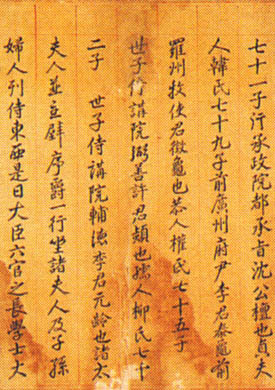 七十一子行承政院都承旨沈公檀也貞夫
人韓氏七十九子前廣州府尹李君泰龜前
羅州牧使君徵龜也恭人權氏七十五子
世子侍講院弼善許君熲也孺人柳氏七十
二子 世子侍講院輔德李君元齡也諸太
夫人並立壁序爵一行坐諸夫人及子孫
婦人列侍東西是日大臣六官之長學士大